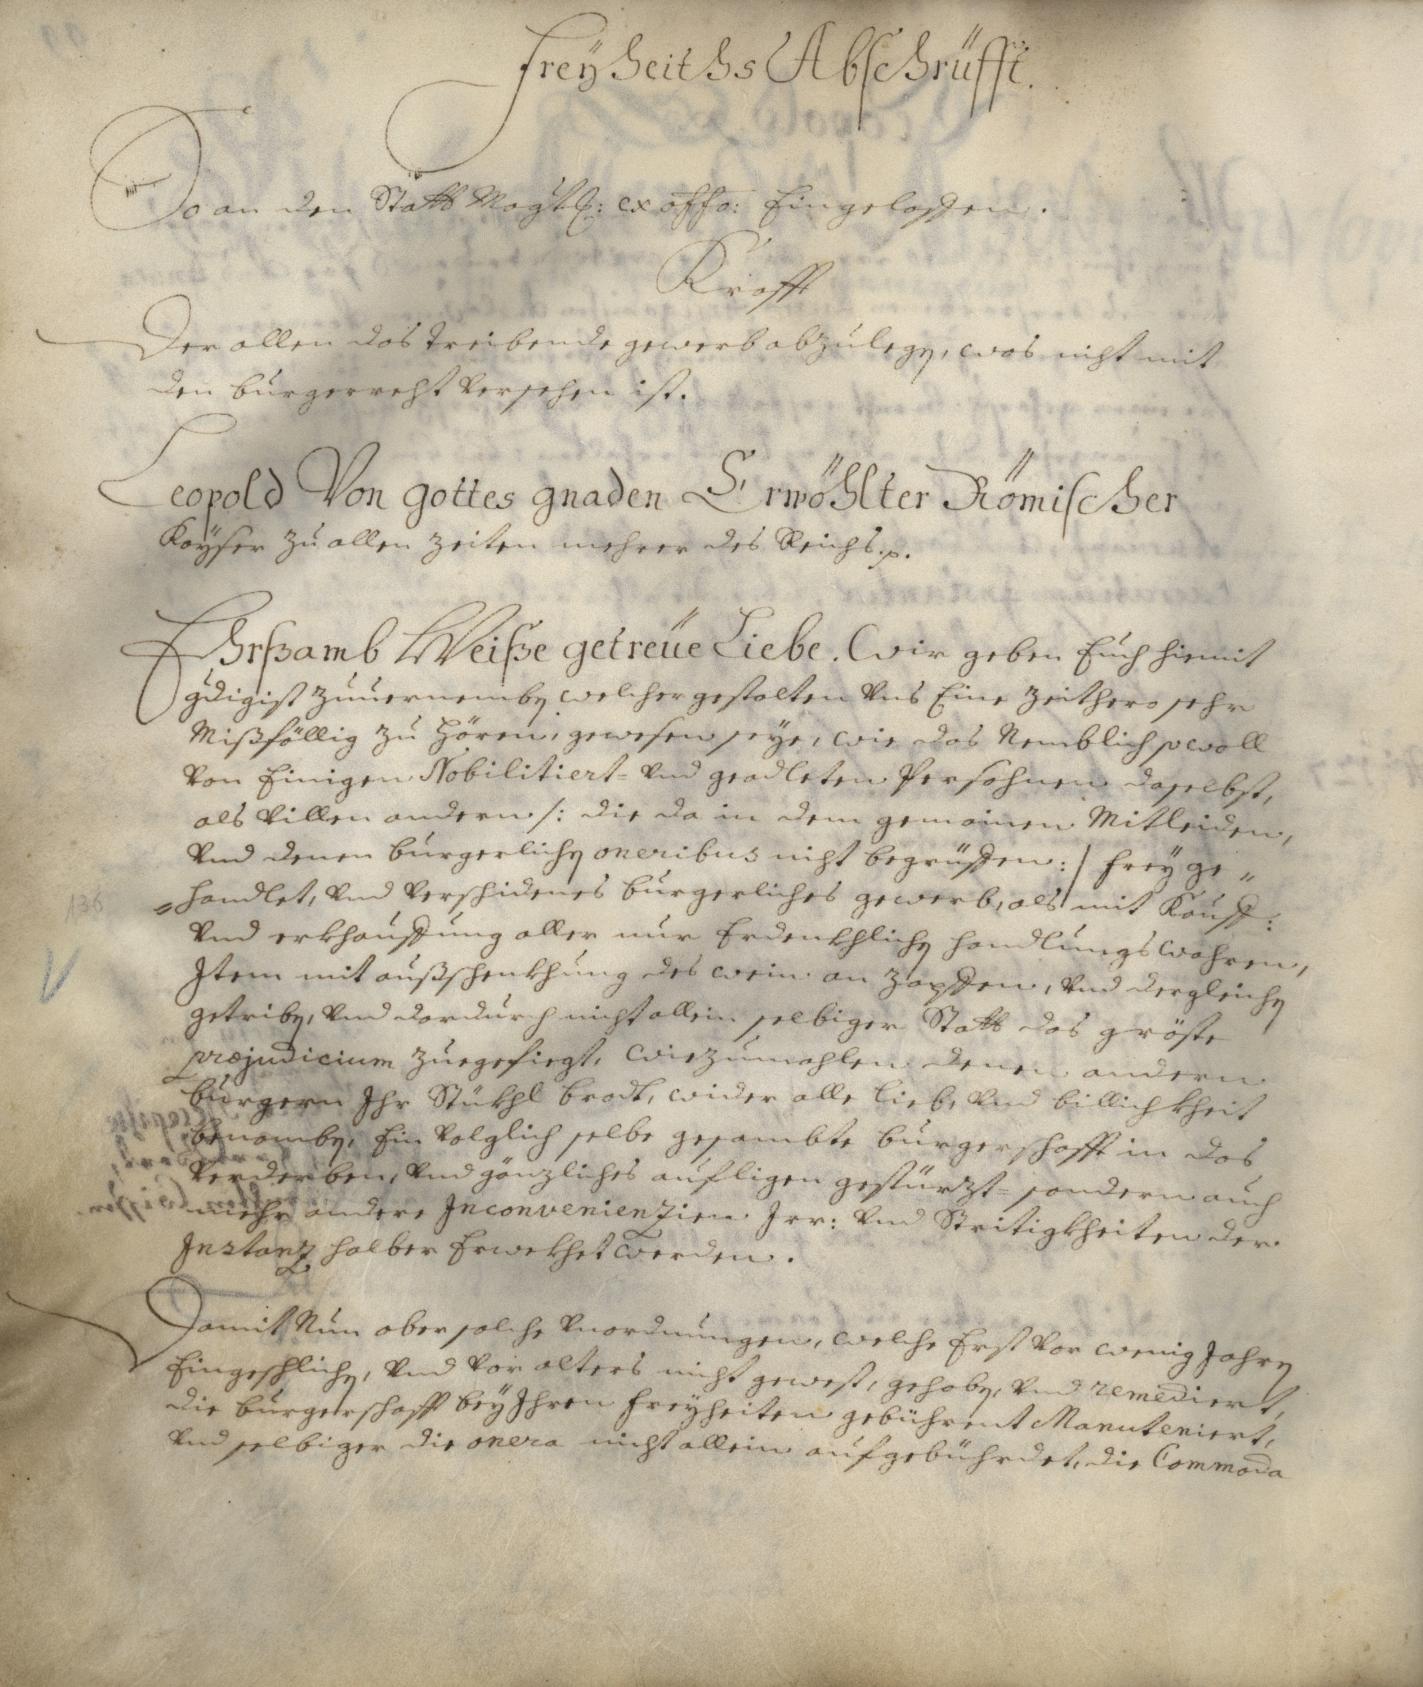 Freÿheiths Abschrüfft.
So an den Statt Mag̃t: ex offo: Eingeloffen.
Krafft
Der allen das treibende gewerb abzulegen, was nicht mit
den burgerrecht versehen ist.
Leopold Von gottes gnaden Erwöhlter Römischer
Kaÿser zu allen Zeiten mehrer des Reichs .p.
Ehrßamb Weiße getreüe Liebe. Wir geben Euch hiemit
gdigist zuuernemben welcher gestalten Vns Eine Zeithero sehr
Mißföllig zu hören gewesen seye, wie das Nemblich sowoll
von Einigen Nobilitiert- Vnd geadleten Persohnen daselbst,
als Villen andern /: die da in dem gemainen Mitleiden,
Vnd denen burgerlichen oneribus nicht begrüffen :/ freÿ ge„
„handlet, Vnd Verschidenes burgerliches gewerb, als mit Kauff:
Vnd erkhauffung aller nur Erdenkhlichen handlungs wahren,
Item mit außschenkhung des wein an Zapffen, Vnd dergleichen
getriben, Vnd dardurch nicht allein selbiger Statt das gröste
præjudicium zuegefiegt, wiezumahlen denen andern
burgern Ihr Stükhl brodt, wider alle lieb, Vnd billichkheit
benomben, Ein Volglich selbe gesambte burgerschafft in das
Verderben, Vnd gänzliches aufligen gestürzt- sondern auch
mehr andere Inconvenienzien Irr: Vnd Stritigkheiten der
Instanz halber Erwekhet werden.
Damit Nun aber solche Vnordnungen, welche Erst vor wenig Jahren
Eingeschlichen, Vnd Vor alters nicht gewest, gehoben, Vnd remediert,
die burgerschafft beÿ Ihren freÿheiten gebührent Manuteniert,
Vnd selbiger die onera nicht allein aufgebührdet, die Commoda
136